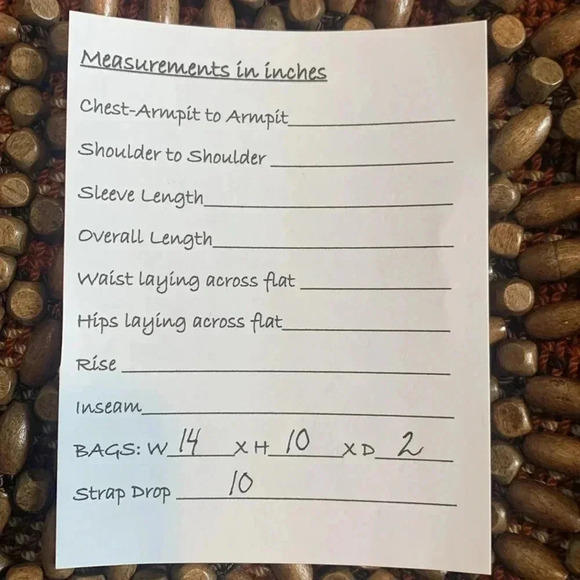 Measurements in inches
Chest-Armpit to Armpit
Shoulder to Shoulder
Sleeve Length
Overall Length
Waist laying across flat
Hips laying across flat
Rise
Inseam
BAGS: W 14 X H 10 X D 2
Strap Drop 10